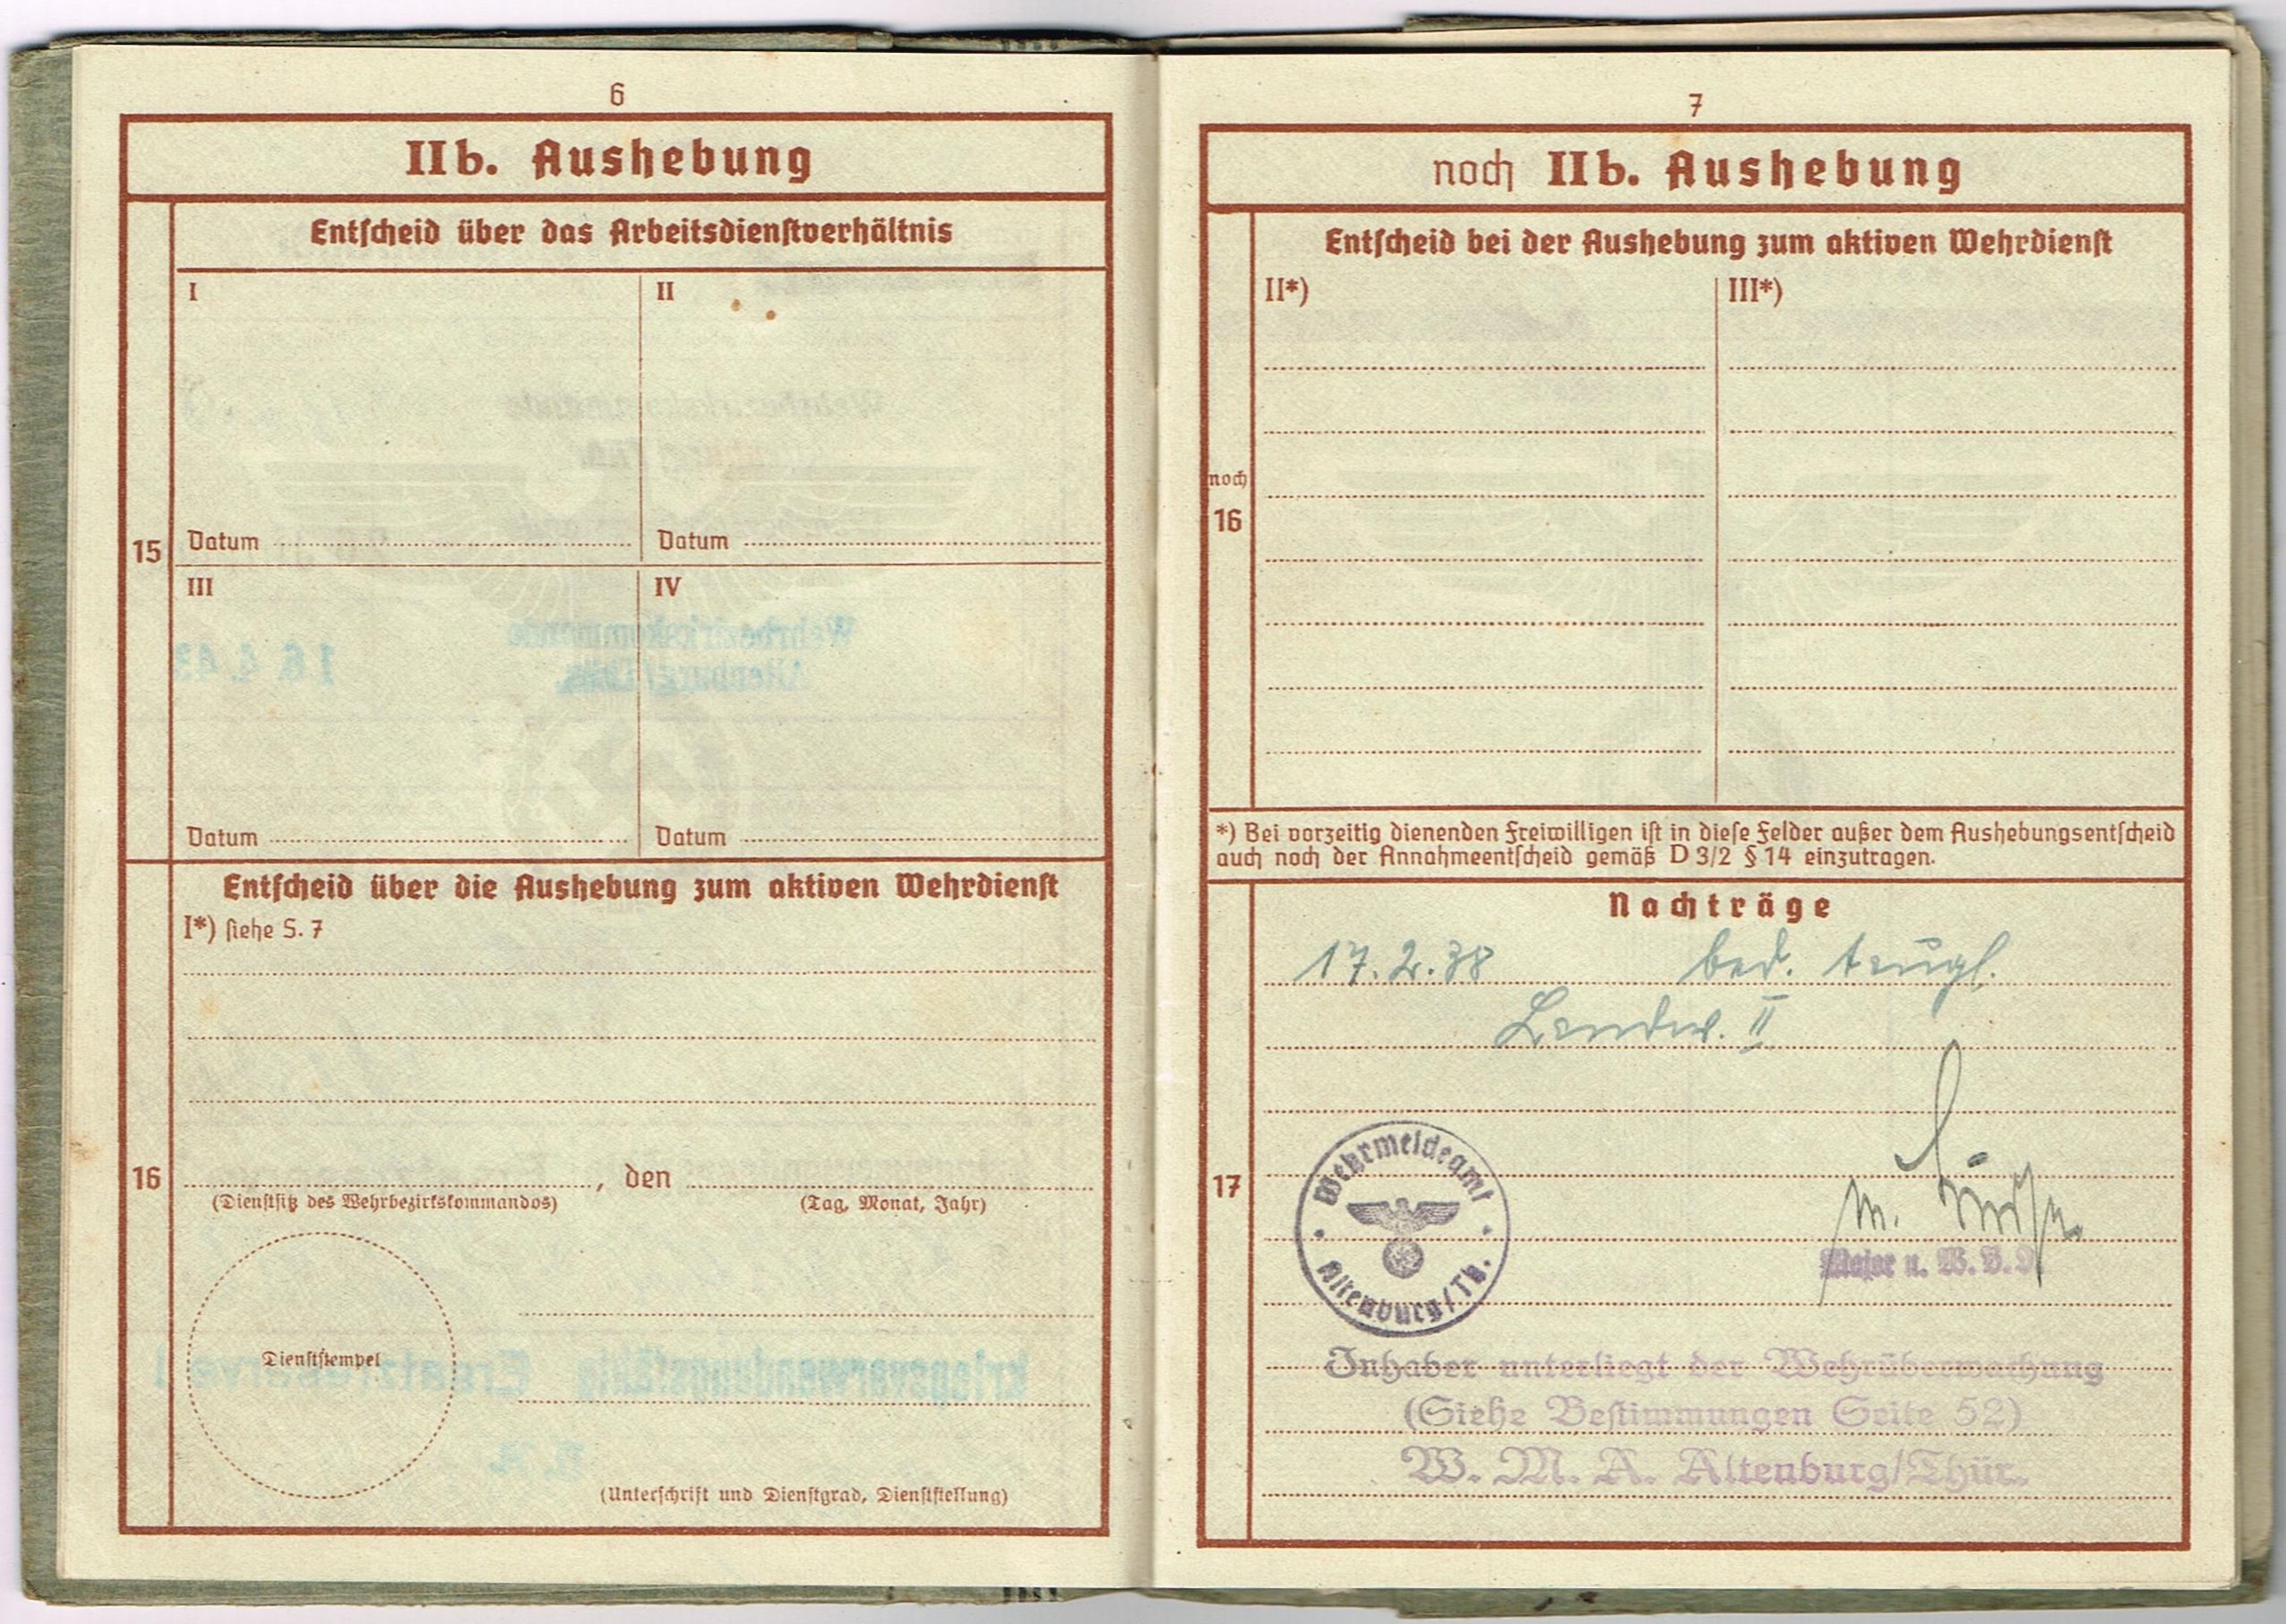 6
IIb. Aushebung
Entscheid über das Arbeitsdienstverhältnis
I
II
Datum
Datum
15
III
IV
Datum
Datum
Entscheid über die Aushebung zum aktiven Wehrdienst
I*) siehe S. 7
16
, den
(Dienstsitz des Wehrbezirkskommandos)
(Tag, Monat, Jahr)
Dienststempel
(Unterschrift und Dienstgrad, Dienststellung)
Wehrbezirkskommando
Altenburg/
16.4.43
kriegsverwendungsfähig Ersatzreserve I
7
noch IIb. Aushebung
Entscheid bei der Aushebung zum aktiven Wehrdienst
II*)
III*)
noch
16
*) Bei vorzeitig dienenden Freiwilligen ist in diese Felder außer dem Aushebungsentscheid
auch noch der Annahmeentscheid gemäß D 3/2 § 14 einzutragen.
Nachträge
17.2.38 bed. taugl.
Landw. II
17
Wehrmeldeamt
Altenburg/Th.
Major u. W.
Inhaber unterliegt der Wehrüberwachung
(Siehe Bestimmungen Seite 52)
W. M. A. Altenburg/Thür.